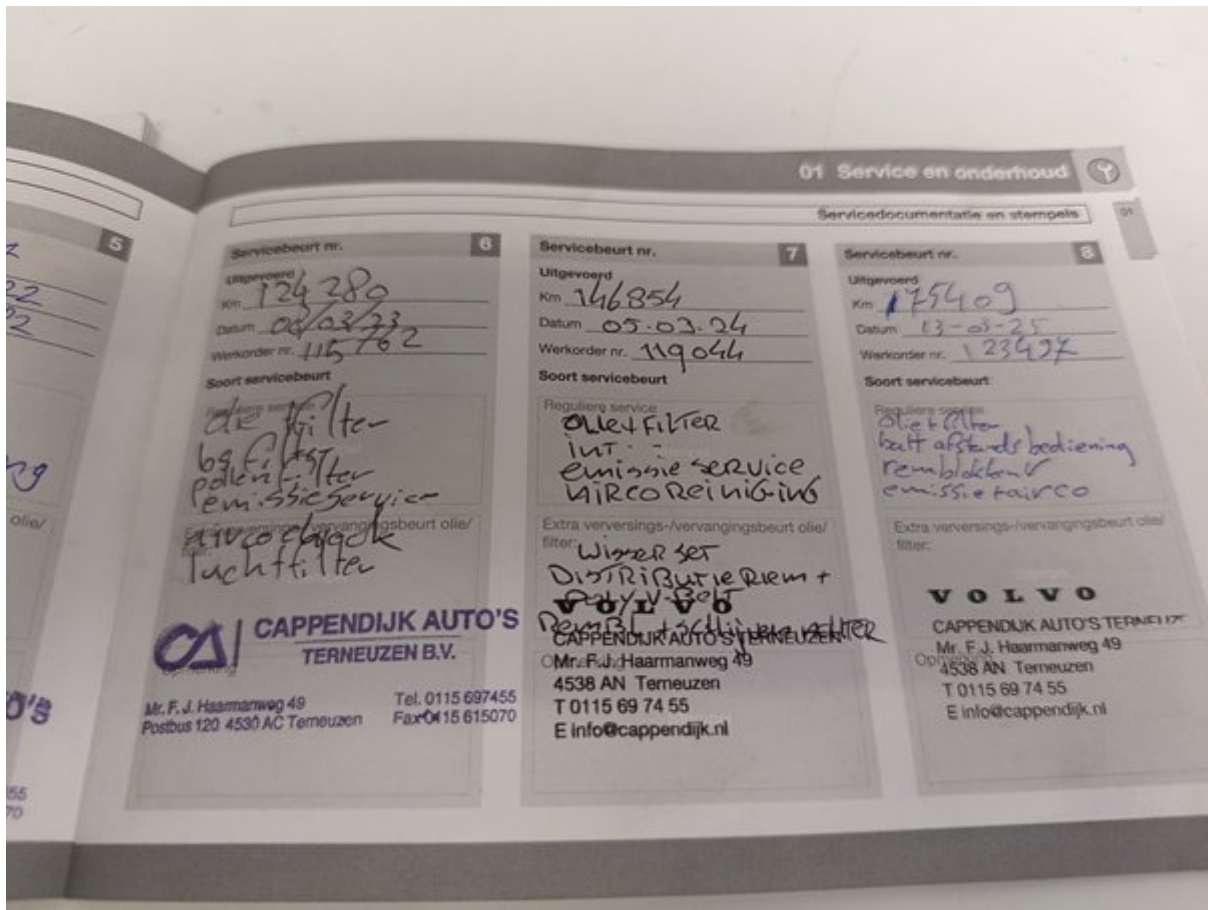 01 Service en onderhoud
Servicedocumentatie en stempels
01
5
22
olie/
Servicebeurt nr. 6
Uitgevoerd
Km 124280
Datum 06/03/23
Werkorder nr. 115762
Soort servicebeurt
Reguliere service
olie filter
polenfilter
emissieservice
Extra verversings-/vervangingsbeurt olie/
filter:
airco check
luchtfilter
CAPPENDIJK AUTO'S
TERNEUZEN B.V.
Opmerking
Mr. F. J. Haarmanweg 49 Tel. 0115 697455
Postbus 120 4530 AC Terneuzen Fax 0115 615070
Servicebeurt nr. 7
Uitgevoerd
Km 146854
Datum 05-03-24
Werkorder nr. 119044
Soort servicebeurt
Reguliere service
OLIE+FILTER
INT
emissie SERVICE
AIRCO REINIGING
Extra verversings-/vervangingsbeurt olie/
filter:
WISSER SET
DISTRIBUTIE RIEM +
POLY-V-BELT
VOLVO
REMBL + SCHIJVEN ACHTER
CAPPENDIJK AUTO'S TERNEUZEN
Mr. F.J. Haarmanweg 49
4538 AN Terneuzen
T 0115 69 74 55
E info@cappendijk.nl
Servicebeurt nr. 8
Uitgevoerd
Km 175409
Datum 13-03-25
Werkorder nr. 123497
Soort servicebeurt
Reguliere service
olie+filter
batt afstands bediening
remblokken V
emissie+airco
Extra verversings-/vervangingsbeurt olie/
filter:
VOLVO
CAPPENDIJK AUTO'S TERNEUZE
Mr. F.J. Haarmanweg 49
4538 AN Terneuzen
T 0115 69 74 55
E info@cappendijk.nl